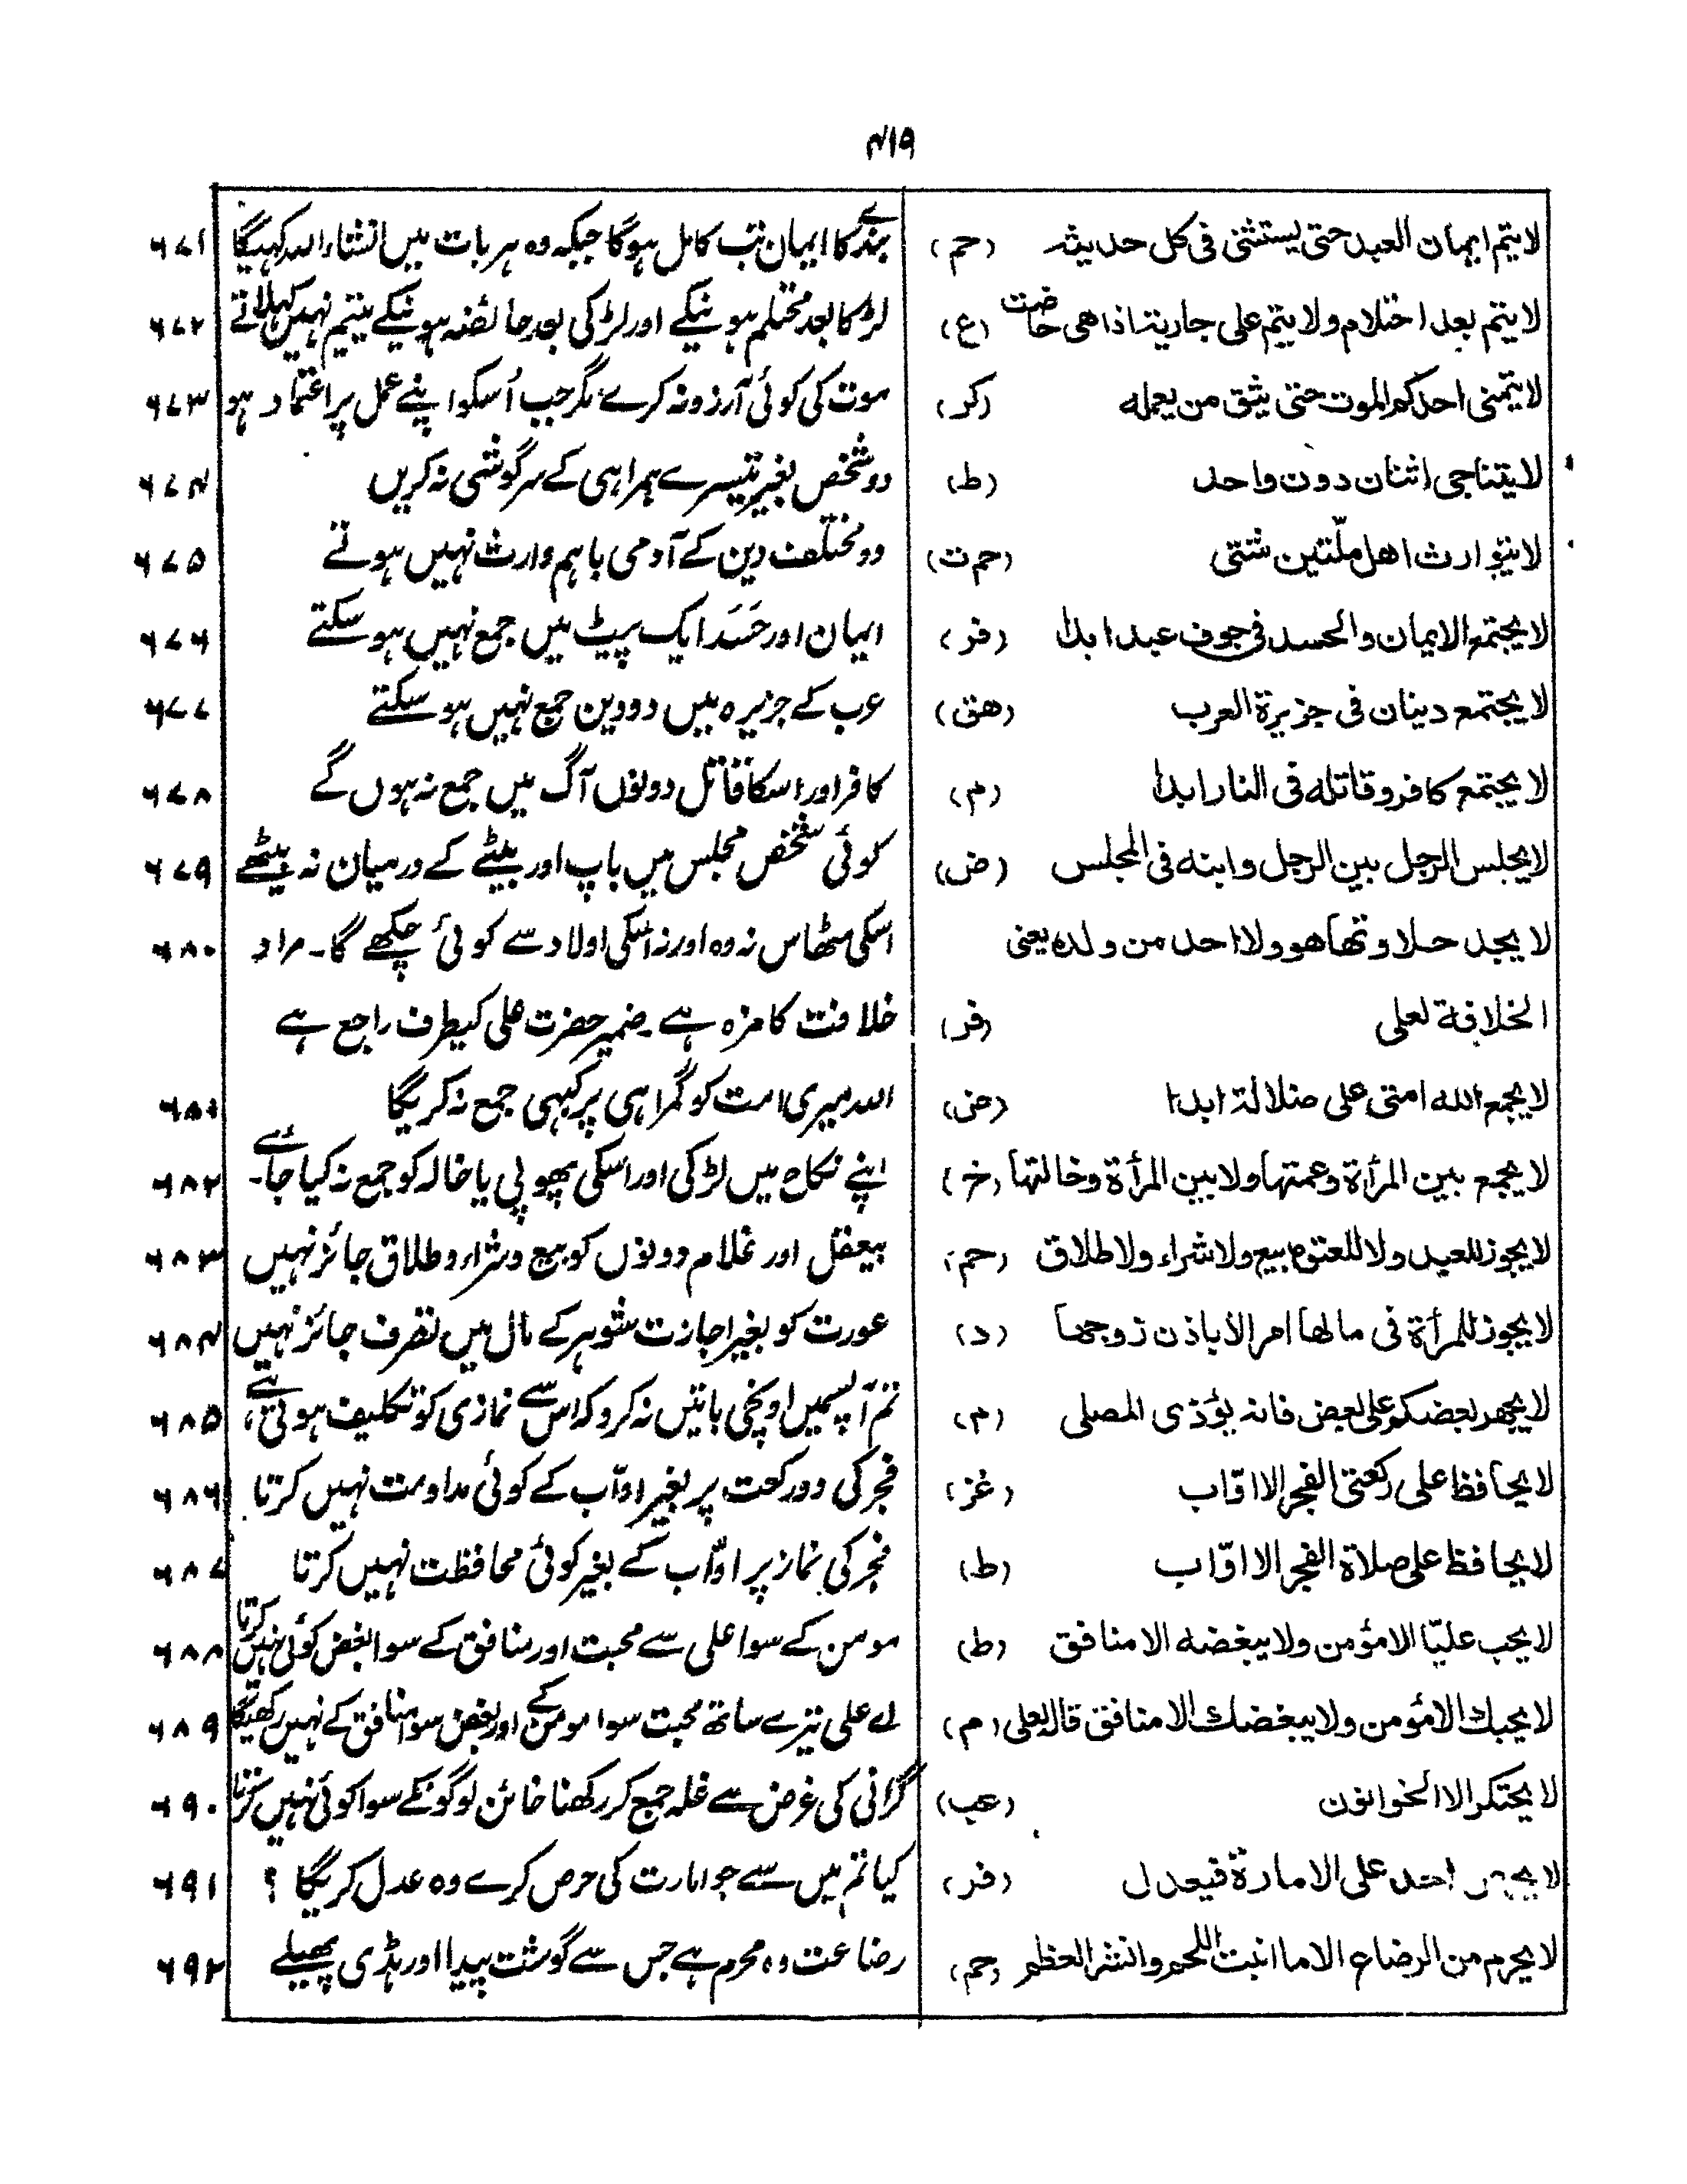 ۴۱۹
لا يتم ايمان العبد حتى يستثنى فى كل حديثه (حم) بندے کا ایمان تب کامل ہوگا جبکہ وہ ہر بات میں انشاء اللہ کہیگا ۶۷۱
لا يتم بعد احتلام ولا يتم على جارية اذا هى حاضت (ع) لڑکا بعد محتلم ہونیکے اور لڑکی بعد حائضہ ہونیکے یتیم نہیں کہلاتے ۶۷۲
لا يتمنى احدكم الموت حتى يثق من يعمله (كر) موت کی کوئی آرزو نہ کرے مگر جب اُسکو اپنے عمل پر اعتماد ہو ۶۷۳
لا يتناجى اثنان دون واحد (ط) دو شخص بغیر تیسرے ہمراہی کے سرگوشی نہ کریں ۶۷۴
لا يتوارث اهل ملّتين شتى (حم ت) دو مختلف دین کے آدمی باہم وارث نہیں ہوتے ۶۷۵
لا يجتمع الايمان والحسد فى جوف عبد ابدا (فر) ایمان اور حَسَد ایک پیٹ میں جمع نہیں ہو سکتے ۶۷۶
لا يجتمع دينان فى جزيرة العرب (هق) عرب کے جزیرہ میں دو دین جمع نہیں ہو سکتے ۶۷۷
لا يجتمع كافر و قاتله فى النار ابدا (م) کافر اور اسکا قاتل دونوں آگ میں جمع نہ ہوں گے ۶۷۸
لا يجلس الرجل بين الرجل وابنه فى المجلس (ض) کوئی شخص مجلس میں باپ اور بیٹے کے درمیان نہ بیٹھے ۶۷۹
لا يجد حلاوتها هو ولا احد من ولده يعنى اسکی مٹھاس نہ وہ اور نہ اسکی اولاد سے کوئی چکھے گا۔ مراد ۶۸۰
الخلافة لعلى (فر) خلافت کا مزہ ہے۔ ضمیر حضرت علی کیطرف راجع ہے
لا يجمع الله امتى على ضلالة ابدا (ض) اللہ میری امت کو گمراہی پر کبھی جمع نہ کریگا ۶۸۱
لا يجمع بين المرأة وعمتها ولا بين المرأة وخالتها (خ) اپنے نکاح میں لڑکی اور اسکی پھوپی یا خالہ کو جمع نہ کیا جائے۔ ۶۸۲
لا يجوز للعبد ولا للمعتوه بيع ولا شراء ولا طلاق (حم) بیعقل اور غلام دونوں کو بیع و شراء و طلاق جائز نہیں ۶۸۳
لا يجوز للمرأة فى مالها امر الا باذن زوجها (د) عورت کو بغیر اجازت شوہر کے مال میں تصرف جائز نہیں ۶۸۴
لا يجهر بعضكم على بعض فانه يؤذى المصلى (م) تم آپسمیں اونچی باتیں نہ کرو کہ اس سے نمازی کو تکلیف ہوتی ہے ۶۸۵
لا يحافظ على ركعتى الفجر الا اوّاب (غز) فجر کی دو رکعت پر بغیر اوّاب کے کوئی مداومت نہیں کرتا ۶۸۶
لا يحافظ على صلاة الفجر الا اوّاب (ط) فجر کی نماز پر اوّاب کے بغیر کوئی محافظت نہیں کرتا ۶۸۷
لا يحب عليّا الا مؤمن ولا يبغضه الا منافق (ط) مومن کے سوا علی سے محبت اور منافق کے سوا بغض کوئی نہیں کرتا ۶۸۸
لا يحبك الا مؤمن ولا يبغضك الا منافق قاله لعلى (م) اے علی تیرے ساتھ محبت سوا مومن کے اور بغض سوا منافق کے نہیں رکھیگا ۶۸۹
لا يحتكر الا الخوانون (عب) گرانی کی غرض سے غلہ جمع کر رکھنا خائن لوگونکے سوا کوئی نہیں کرتا ۶۹۰
لا احد على الامارة فيعدل (فر) کیا تم میں سے جو امارت کی حرص کرے وہ عدل کریگا ؟ ۶۹۱
لا يحرم من الرضاع الا ما انبت اللحم وانشز العظم (حم) رضاعت وہ محرم ہے جس سے گوشت پیدا اور ہڈی پھیلے ۶۹۲